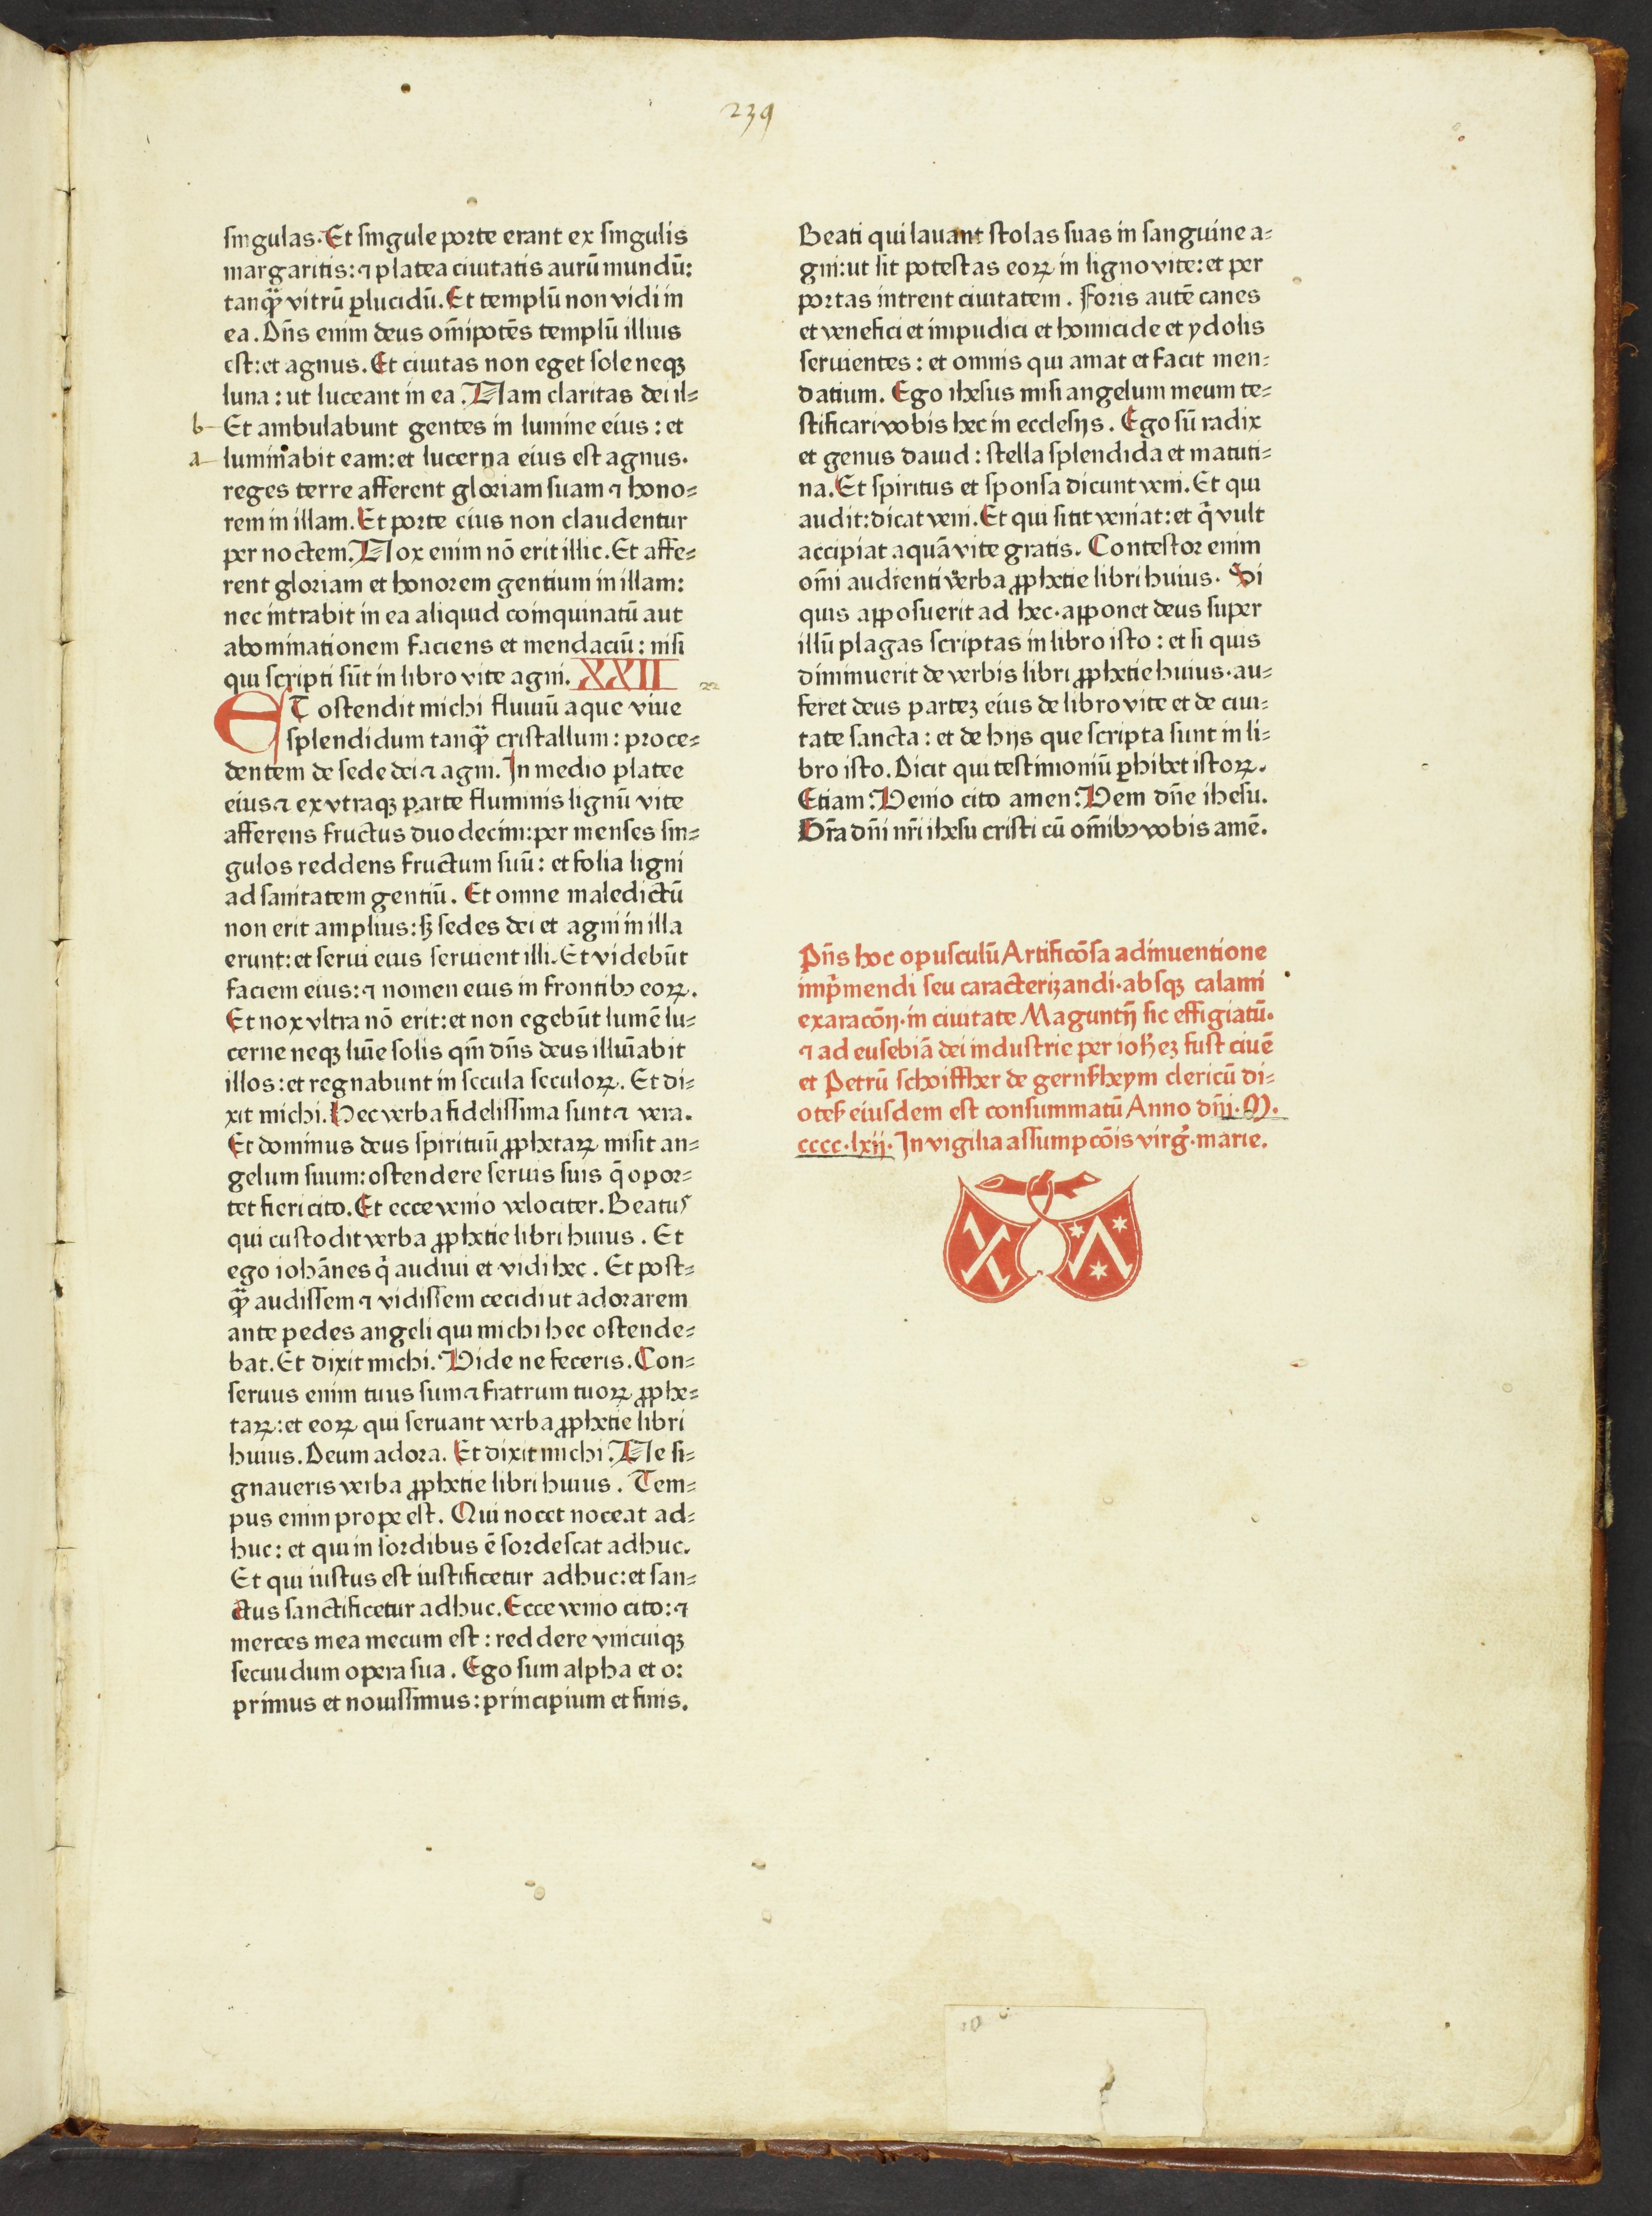 239
singulas. Et singule porte erant ex singulis
margaritis: ⁊ platea ciuitatis aurū mundū:
tanq̄ vitrū ꝑlucidū. Et templū non vidi in
ea. Dn̄s enim deus om̄ipotēs templū illius
est: et agnus. Et ciuitas non eget sole neqꝫ
luna: ut luceant in ea. Nam claritas dei il⸗
b Et ambulabunt gentes in lumine eius: et
a luminabit eam: et lucerna eius est agnus.
reges terre afferent gloriam suam ⁊ hono⸗
rem in illam. Et porte eius non claudentur
per noctem. Nox enim nō erit illic. Et affe⸗
rent gloriam et honorem gentium in illam:
nec intrabit in ea aliquid coinquinatū aut
abominationem faciens et mendaciū: nisi
qui scripti sūt in libro vite agni. XXII 22
ET ostendit michi fluuiū aque viue
splendidum tanq̄ cristallum: proce⸗
dentem de sede dei ⁊ agni. In medio platee
eius ⁊ ex vtraqꝫ parte fluminis lignū vite
afferens fructus duodecim: per menses sin⸗
gulos reddens fructum suū: et folia ligni
ad sanitatem gentiū. Et omne maledictū
non erit amplius: sꝫ sedes dei et agni in illa
erunt: et serui eius seruient illi. Et videbūt
faciem eius: ⁊ nomen eius in frontibꝫ eoꝝ.
Et nox vltra nō erit: et non egebūt lumē lu⸗
cerne neqꝫ lum̄e solis qm̄ dn̄s deus illum̄abit
illos: et regnabunt in secula seculoꝝ. Et di⸗
xit michi. Hec verba fidelissima sunt ⁊ vera.
Et dominus deus spirituū ꝓphetaꝝ misit an⸗
gelum suum: ostendere seruis suis q̄ opor⸗
tet fieri cito. Et ecce venio velociter. Beatus
qui custodit verba ꝓphetie libri huius. Et
ego iohānes q̇ audiui et vidi hec. Et post⸗
q̄ audissem ⁊ vidissem cecidi ut adorarem
ante pedes angeli qui michi hec ostende⸗
bat. Et dixit michi. Vide ne feceris. Con⸗
seruus enim tuus sum ⁊ fratrum tuoꝝ ꝓphe⸗
taꝝ: et eoꝝ qui seruant verba ꝓphetie libri
huius. Deum adora. Et dixit michi. Ne si⸗
gnaueris verba ꝓphetie libri huius. Tem⸗
pus enim prope est. Qui nocet noceat ad⸗
huc: et qui in sordibus ē sordescat adhuc.
Et qui iustus est iustificetur adhuc: et san⸗
ctus sanctificetur adhuc. Ecce venio cito: ⁊
merces mea mecum est: reddere vnicuiqꝫ
secuudum opera sua. Ego sum alpha et o:
primus et nouissimus: principium et finis.
Beati qui lauant stolas suas in sanguine a⸗
gni: ut sit potestas eoꝝ in ligno vite: et per
portas intrent ciuitatem. Foris autē canes
et venefici et impudici et homicide et ydolis
seruientes: et omnis qui amat et facit men⸗
datium. Ego ihesus misi angelum meum te⸗
stificari vobis hec in ecclesijs. Ego sū radix
et genus dauid: stella splendida et matuti⸗
na. Et spiritus et sponsa dicunt veni. Et qui
audit: dicat veni. Et qui sitit veniat: et q̇ vult
accipiat aquā vite gratis. Contestor enim
om̄i audienti verba ꝓphetie libri huius. Si
quis apposuerit ad hec. apponet deus super
illū plagas scriptas in libro isto: et si quis
diminuerit de verbis libri ꝓphetie huius. au⸗
feret deus partez eius de libro vite et de ciui⸗
tate sancta: et de hijs que scripta sunt in li⸗
bro isto. Dicit qui testimoniū ꝑhibet istoꝝ.
Etiam. Venio cito amen. Veni dn̄e ihesu.
Gr̄a dn̄i nr̄i ihesu cristi cū om̄ibꝫ vobis amē.
Pn̄s hoc opusculū Artificōsa adinuentione
imp̄mendi seu caracterizandi. absqꝫ calami
exaracōn̄. in ciuitate Maguntn̄ sic effigiatū.
⁊ ad eusebiā dei industrie per ioh̄ez fust ciuē
et Petrū schoiffher de gernsheym clericū di⸗
otes eiusdem est consummatū Anno dn̄i. M.
cccc. lxij. In vigilia assumpcōis virḡ. marie.